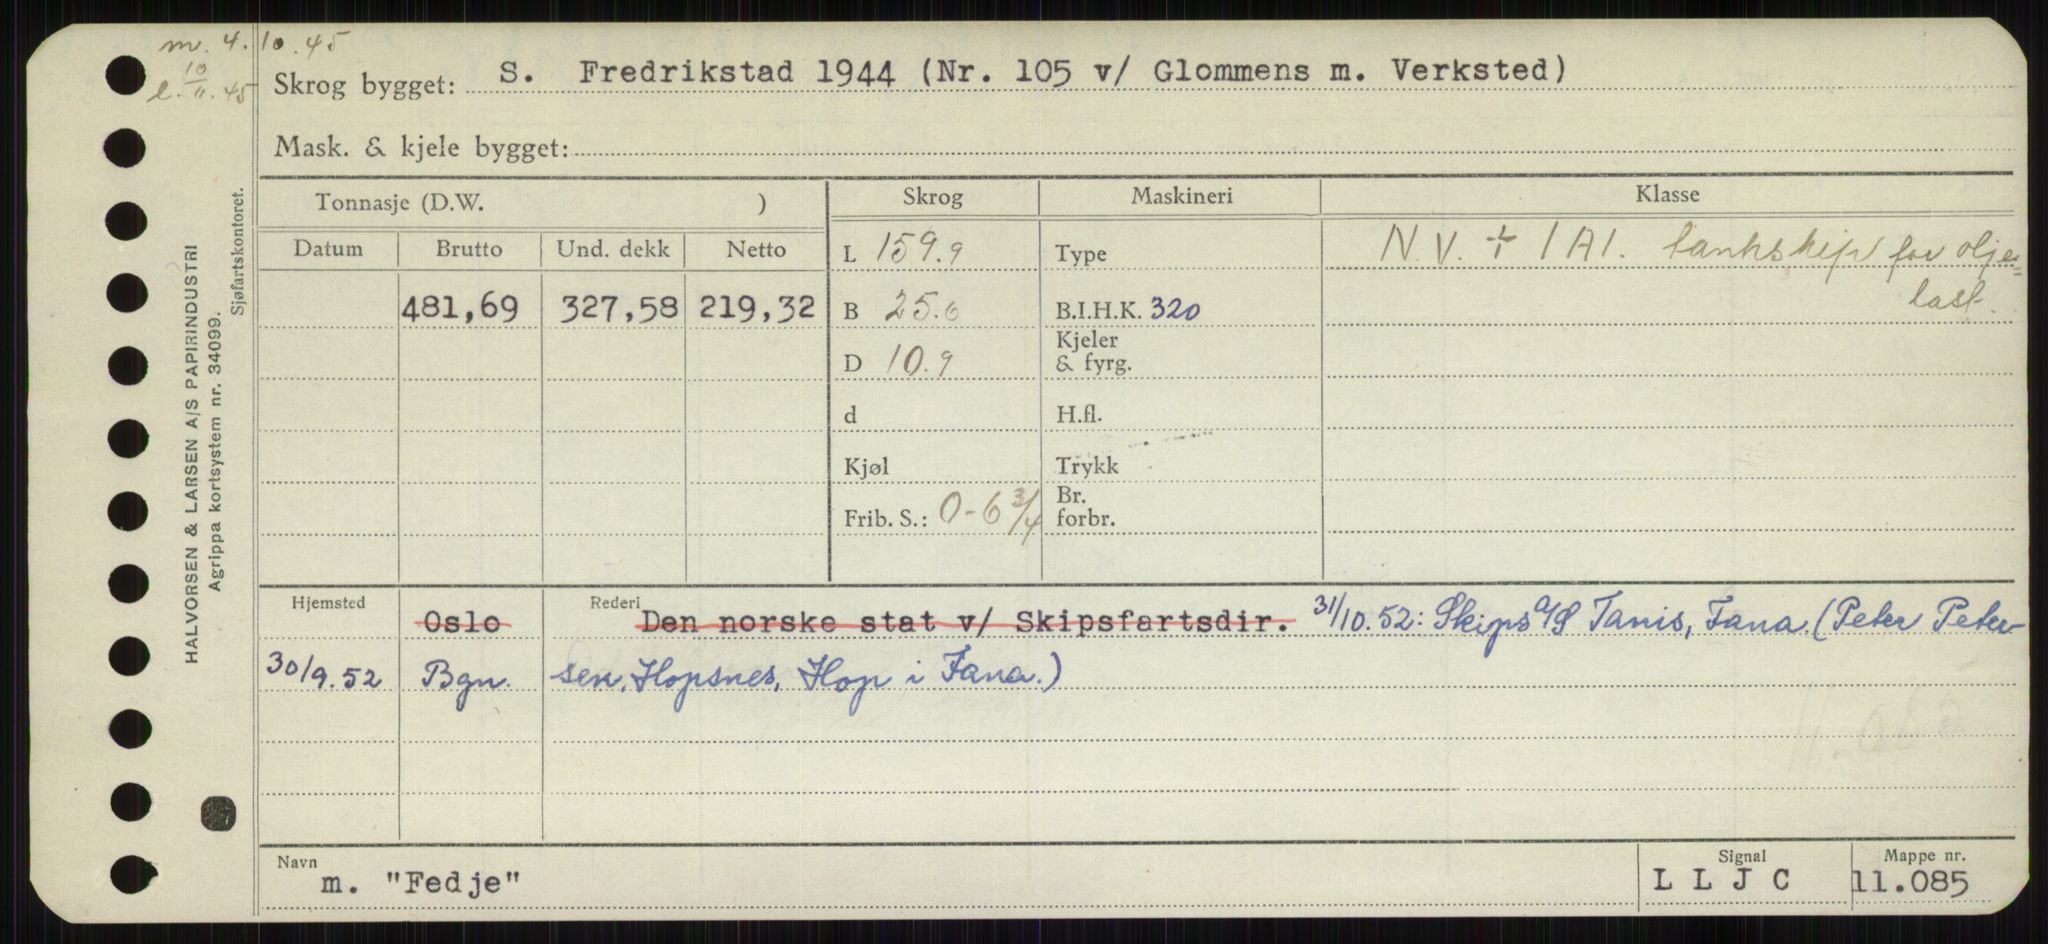 m. 4.10.45
l. 10/11.45
Skrog bygget: S. Fredrikstad 1944 (Nr. 105 v/ Glommens m. Verksted)
Mask. & kjele bygget:
Tonnasje (D.W. )
Skrog Maskineri Klasse
Datum Brutto Und. dekk Netto
L 159.9 Type N.V. + 1A1. tankskip for olje=
481,69 327,58 219,32 B 25.6 B.I.H.K. 320 last.
D 10.9 Kjeler
& fyrg.
d H.fl.
Kjøl Trykk
Frib. S.: 0-6 3/4 Br.
forbr.
Hjemsted Rederi
Oslo Den norske stat v/ Skipsfartsdir. 31/10.52: Skips A/S Tanis, Fana. (Peter Peter-
30/9.52 Bgn. sen, Hopsnes, Hop i Fana.)
Navn Signal Mappe nr.
m. "Fedje" L L J C 11.085
HALVORSEN & LARSEN A/S PAPIRINDUSTRI
Agrippa kortsystem nr. 34099.
Sjøfartskontoret.